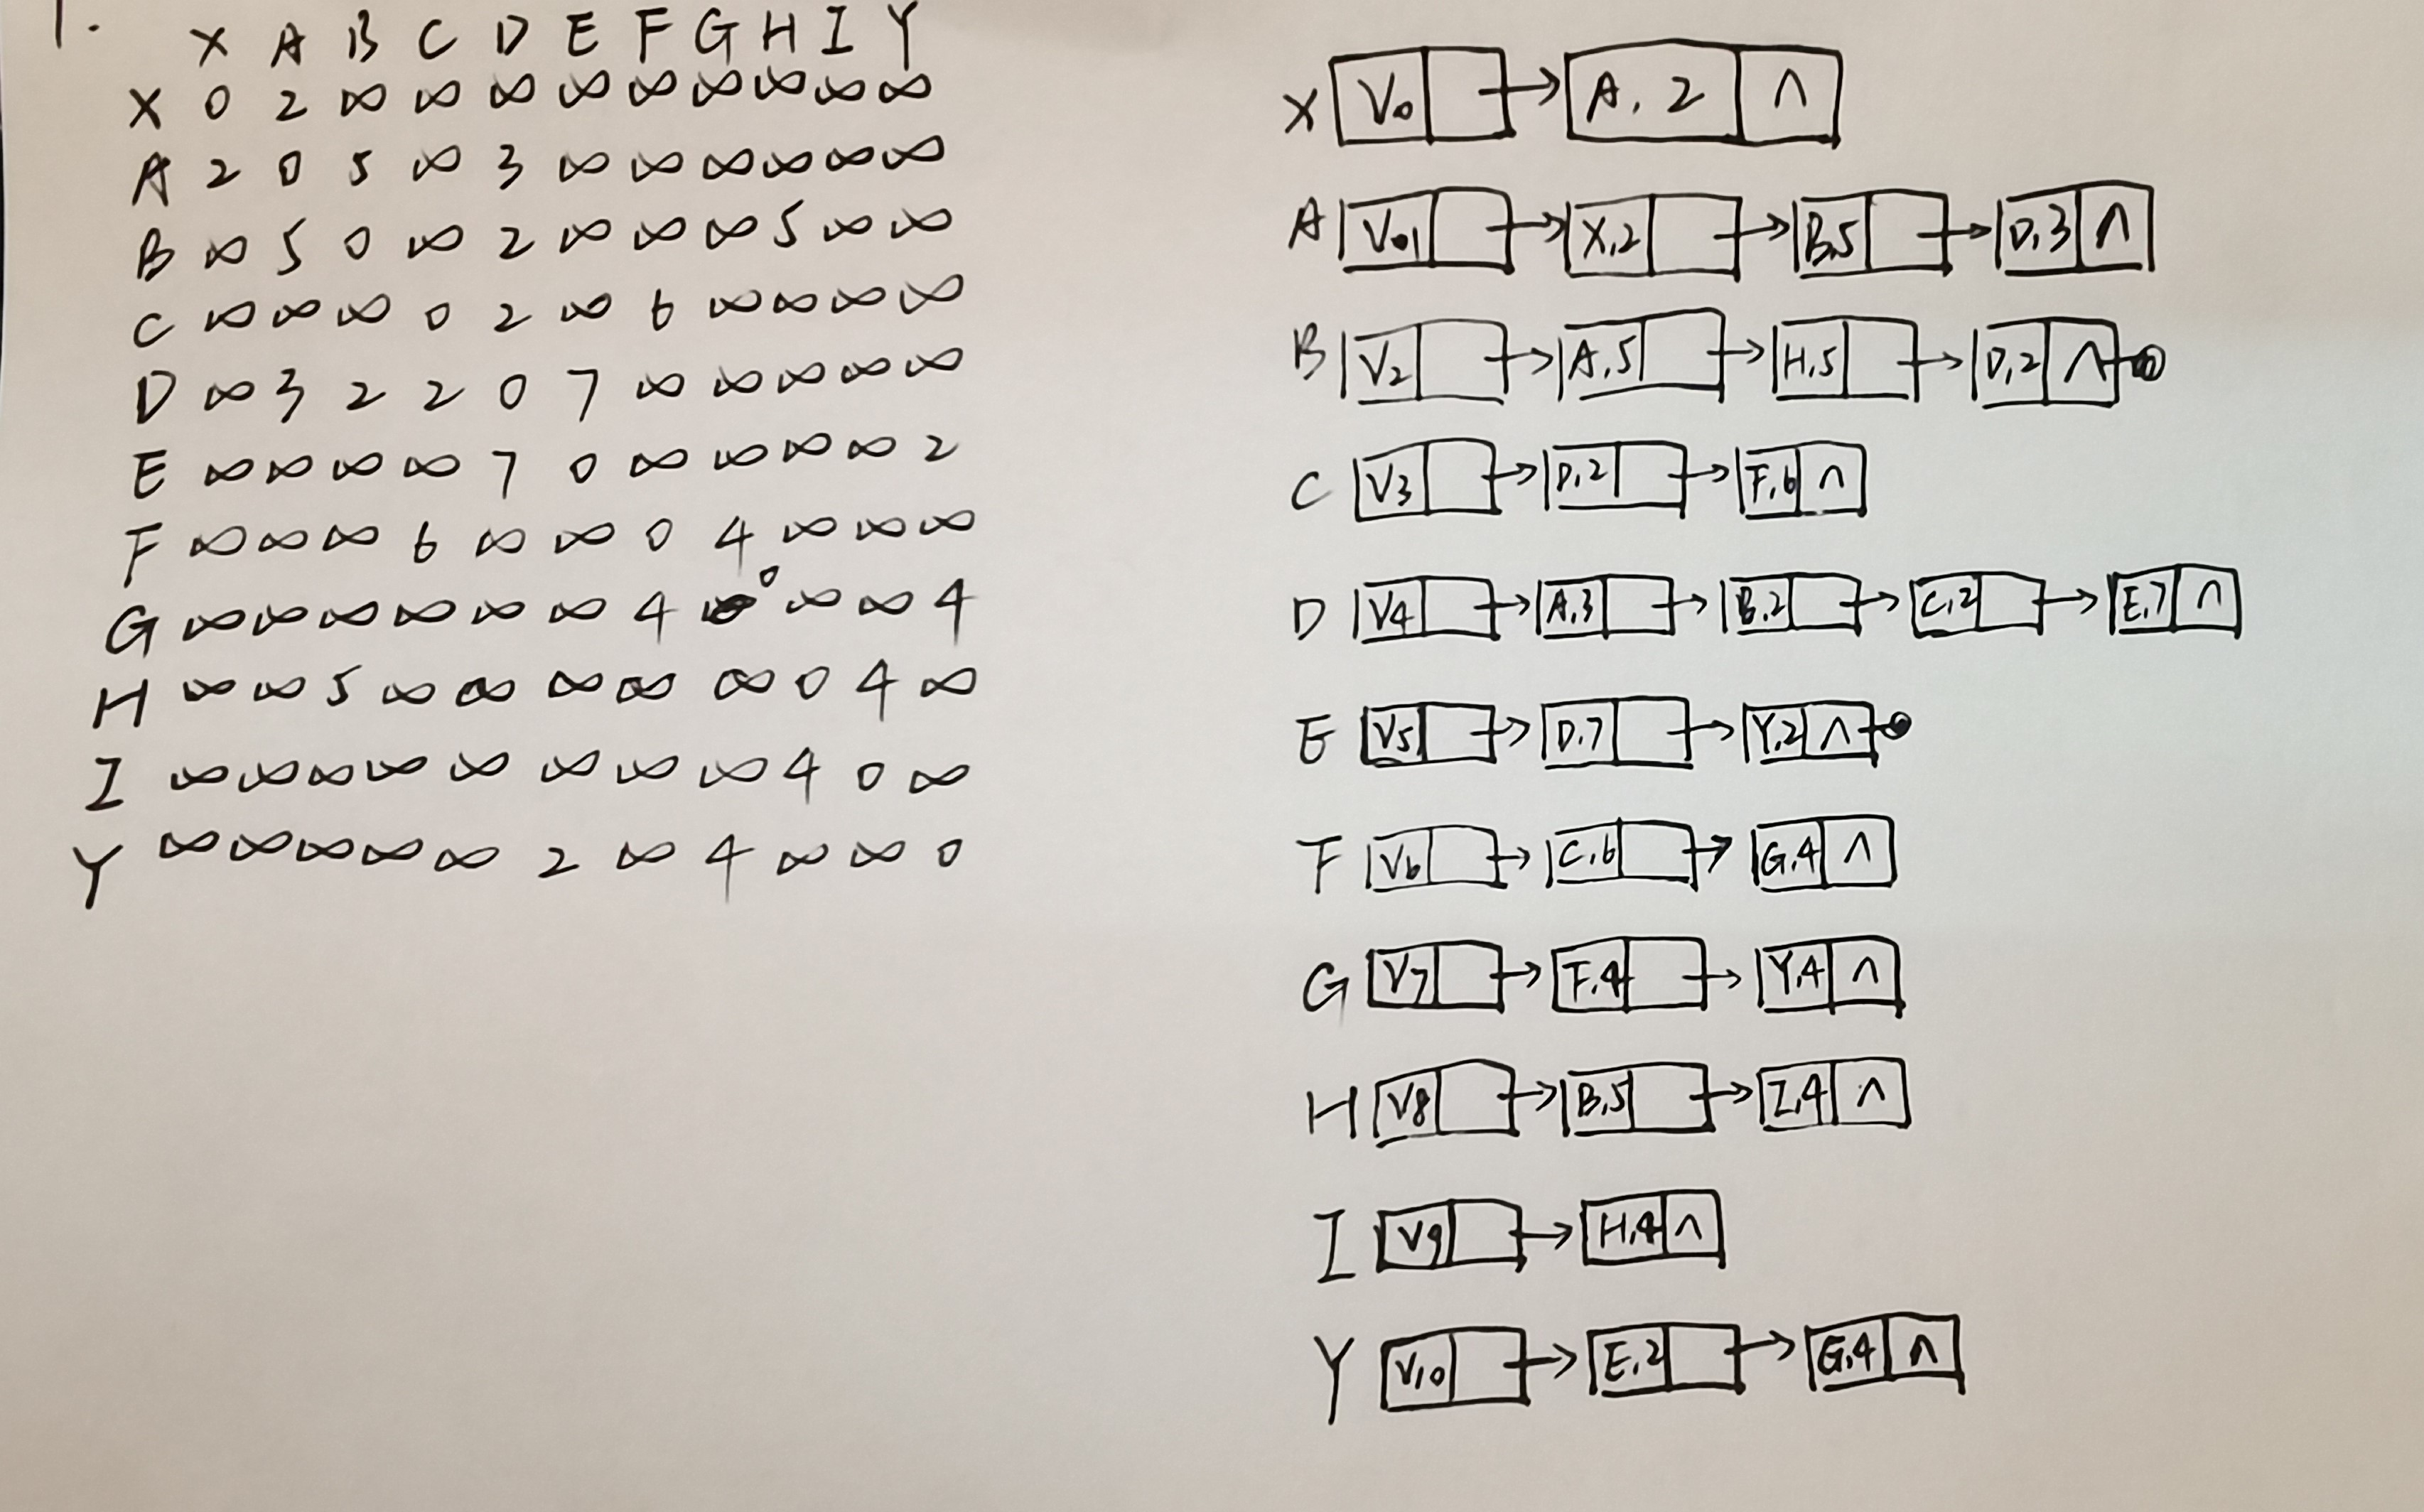 1.
X A B C D E F G H I Y
X 0 2 ∞ ∞ ∞ ∞ ∞ ∞ ∞ ∞ ∞
A 2 0 5 ∞ 3 ∞ ∞ ∞ ∞ ∞ ∞
B ∞ 5 0 ∞ 2 ∞ ∞ ∞ 5 ∞ ∞
C ∞ ∞ ∞ 0 2 ∞ 6 ∞ ∞ ∞ ∞
D ∞ 3 2 2 0 7 ∞ ∞ ∞ ∞ ∞
E ∞ ∞ ∞ ∞ 7 0 ∞ ∞ ∞ ∞ 2
F ∞ ∞ ∞ 6 ∞ ∞ 0 4 ∞ ∞ ∞
G ∞ ∞ ∞ ∞ ∞ ∞ 4 0 ∞ ∞ 4
H ∞ ∞ 5 ∞ ∞ ∞ ∞ ∞ 0 4 ∞
I ∞ ∞ ∞ ∞ ∞ ∞ ∞ ∞ 4 0 ∞
Y ∞ ∞ ∞ ∞ ∞ 2 ∞ 4 ∞ ∞ 0
X V0 → A,2 ∧
A V01 → X,2 → B,5 → D,3 ∧
B V2 → A,5 → H,5 → D,2 ∧
C V3 → D,2 → F,6 ∧
D V4 → A,3 → B,2 → C,2 → E,7 ∧
E V5 → D,7 → Y,2 ∧
F V6 → C,6 → G,4 ∧
G V7 → F,4 → Y,4 ∧
H V8 → B,5 → I,4 ∧
I V9 → H,4 ∧
Y V10 → E,2 → G,4 ∧